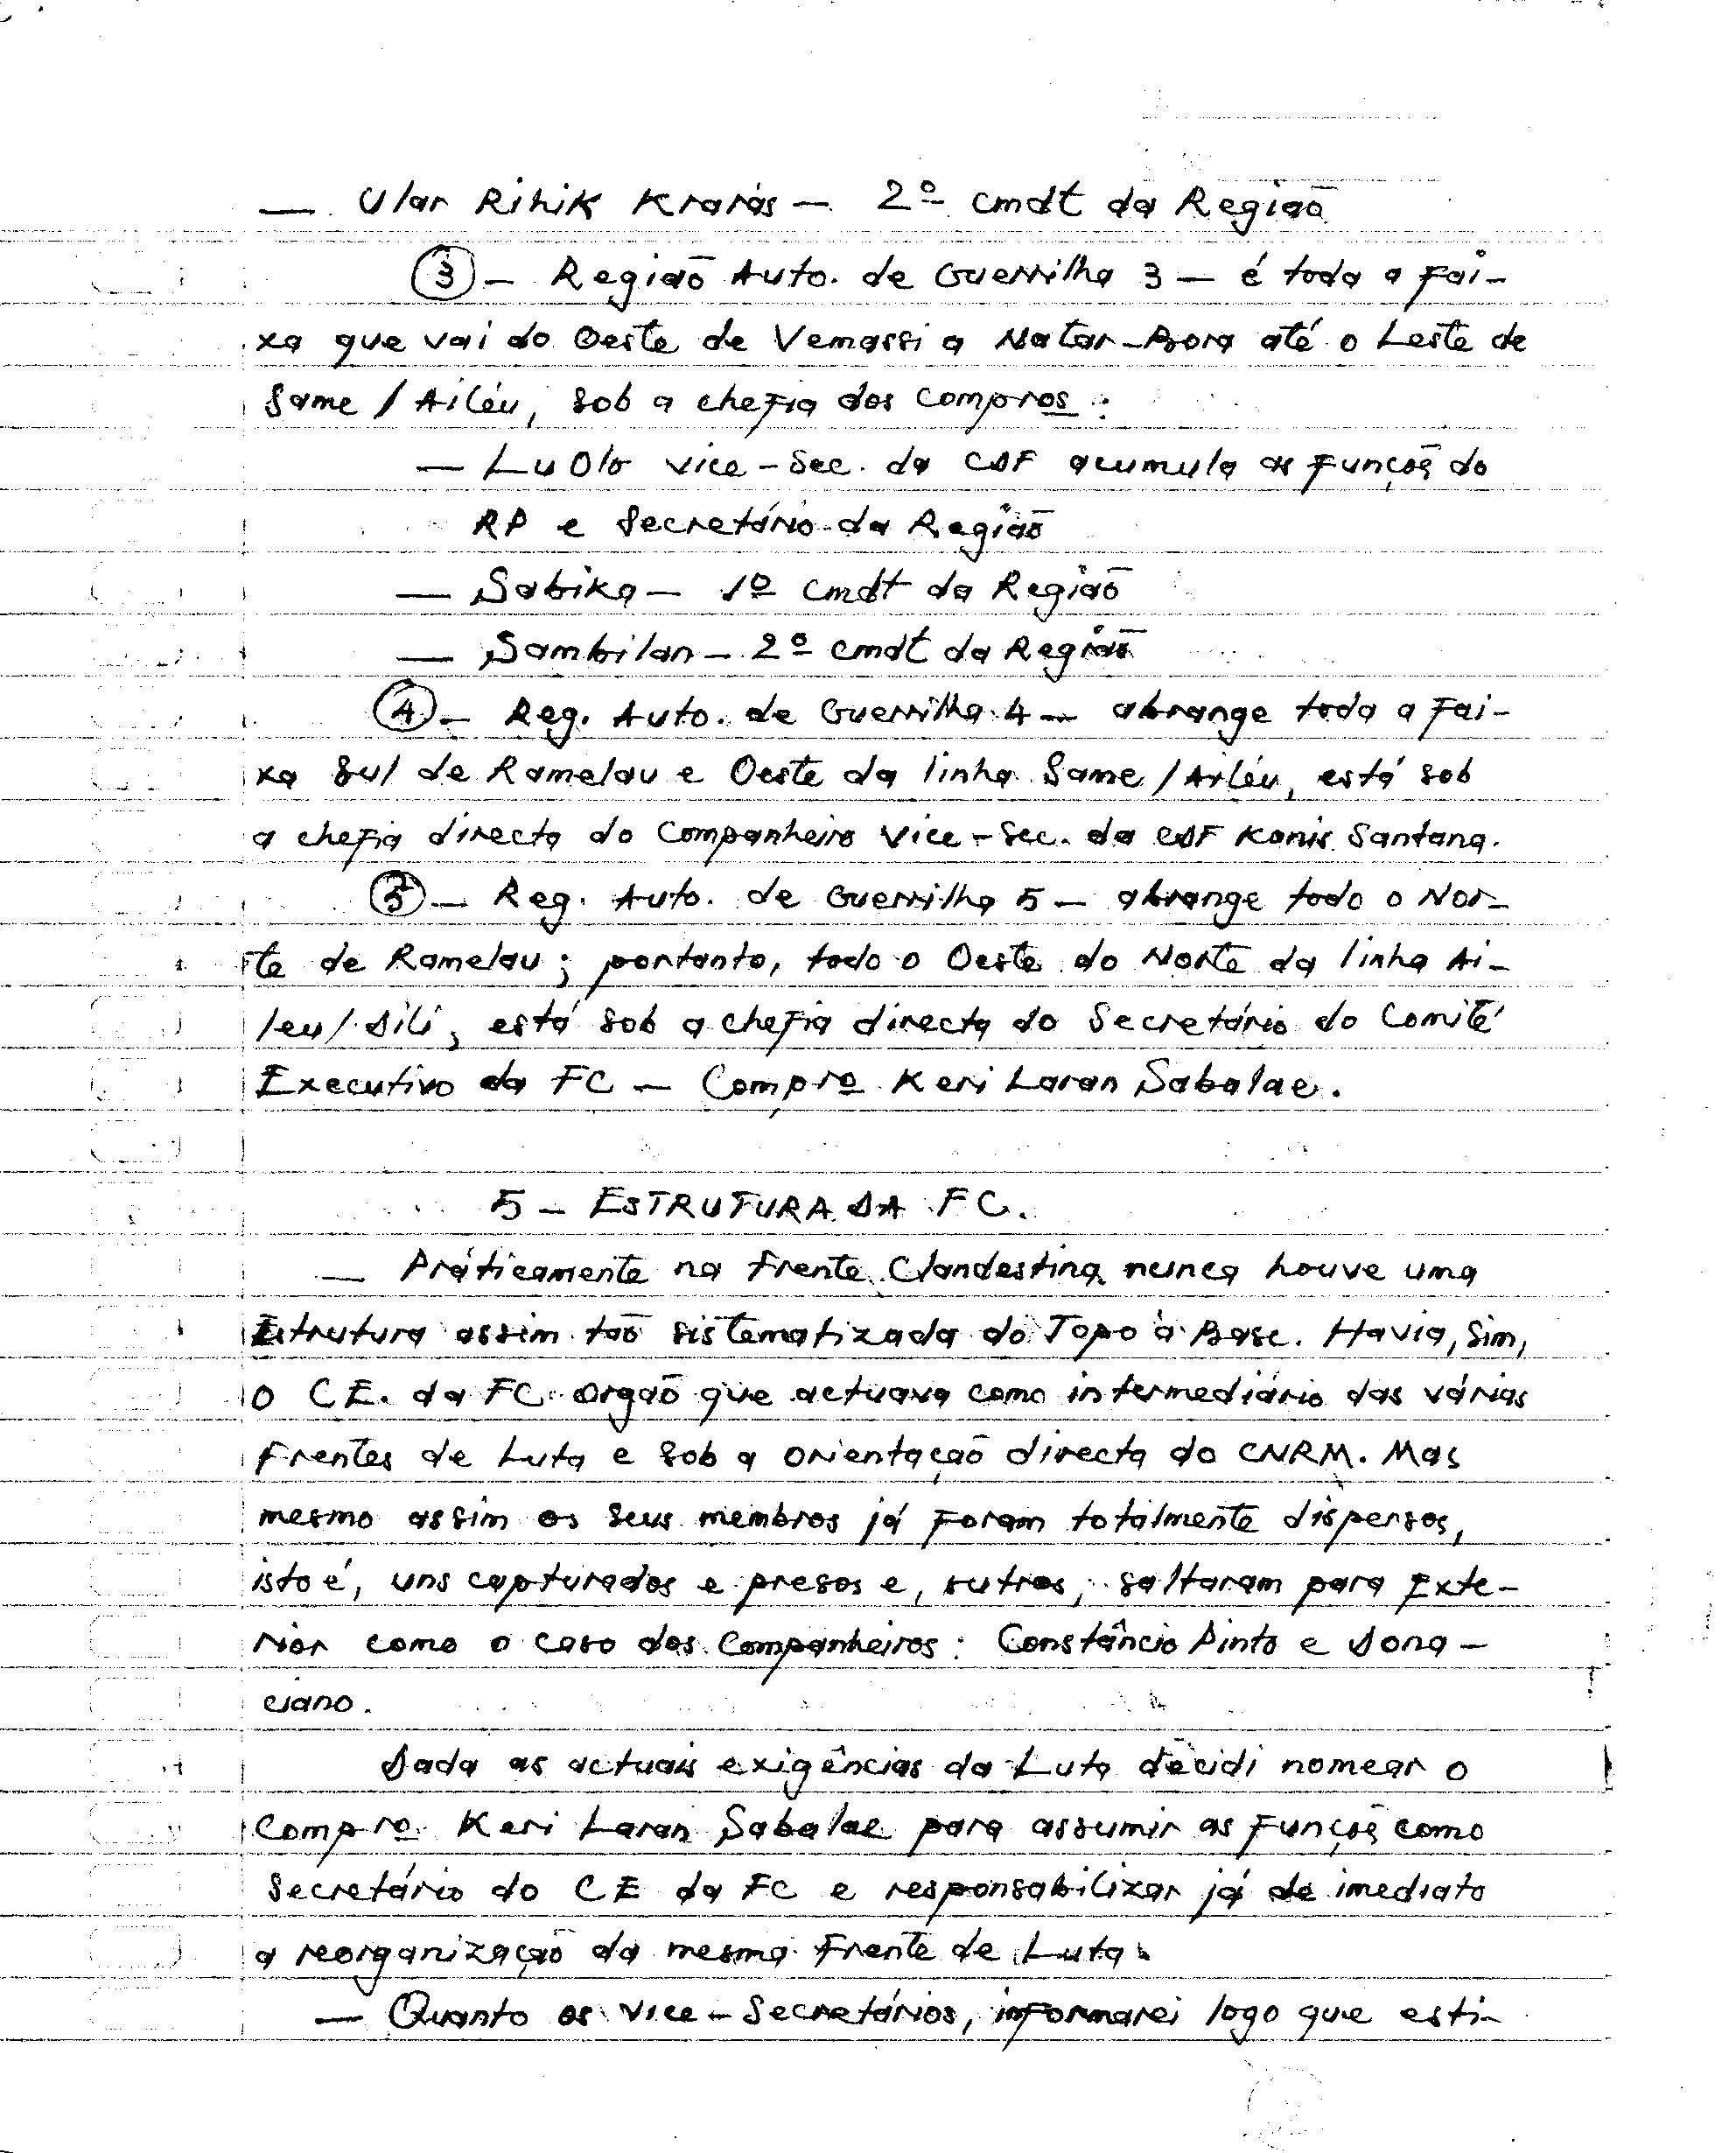 — Ular Rihik Krarás — 2º cmdt da Região
③ — Região Auto. de Guerrilha 3 — é toda a fai-
xa que vai do Oeste de Vemassi a Natar-Bora até o Leste de
Same / Ailéu, sob a chefia dos compros :
— Lu Olo vice-Sec. da CDF acumula as funções do
RP e Secretário da Região
— Sabika — 1º cmdt da Região
— Sambilan — 2º cmdt da Região
④ — Reg. Auto. de Guerrilha 4 — abrange toda a fai-
xa Sul de Ramelau e Oeste da linha Same / Ailéu, está sob
a chefia directa do Companheiro Vice-Sec. da CDF Konis Santana.
⑤ — Reg. Auto. de Guerrilha 5 — abrange todo o Nor-
te de Ramelau ; portanto, todo o Oeste do Norte da linha Ai-
leu / Dili, está sob a chefia directa do Secretário do Comité
Executivo da FC — Compro Keri Laran Sabalae.
5 — ESTRUTURA DA FC.
— Práticamente na Frente Clandestina nunca houve uma
Estrutura assim tão sistematizada do Topo à Base. Havia, sim,
o CE. da FC orgão que actuava como intermediário das várias
Frentes de Luta e sob a orientação directa do CNRM. Mas
mesmo assim os seus membros já foram totalmente dispersos,
isto é, uns capturados e presos e, outros, saltaram para Exte-
rior como o caso dos Companheiros : Constâncio Pinto e Dona-
ciano.
Dada as actuais exigências da Luta decidi nomear o
Compro Keri Laran Sabalae para assumir as funções como
Secretário do CE da FC e responsabilizar já de imediato
a reorganização da mesma Frente de Luta.
— Quanto os Vice-Secretários, informarei logo que esti-